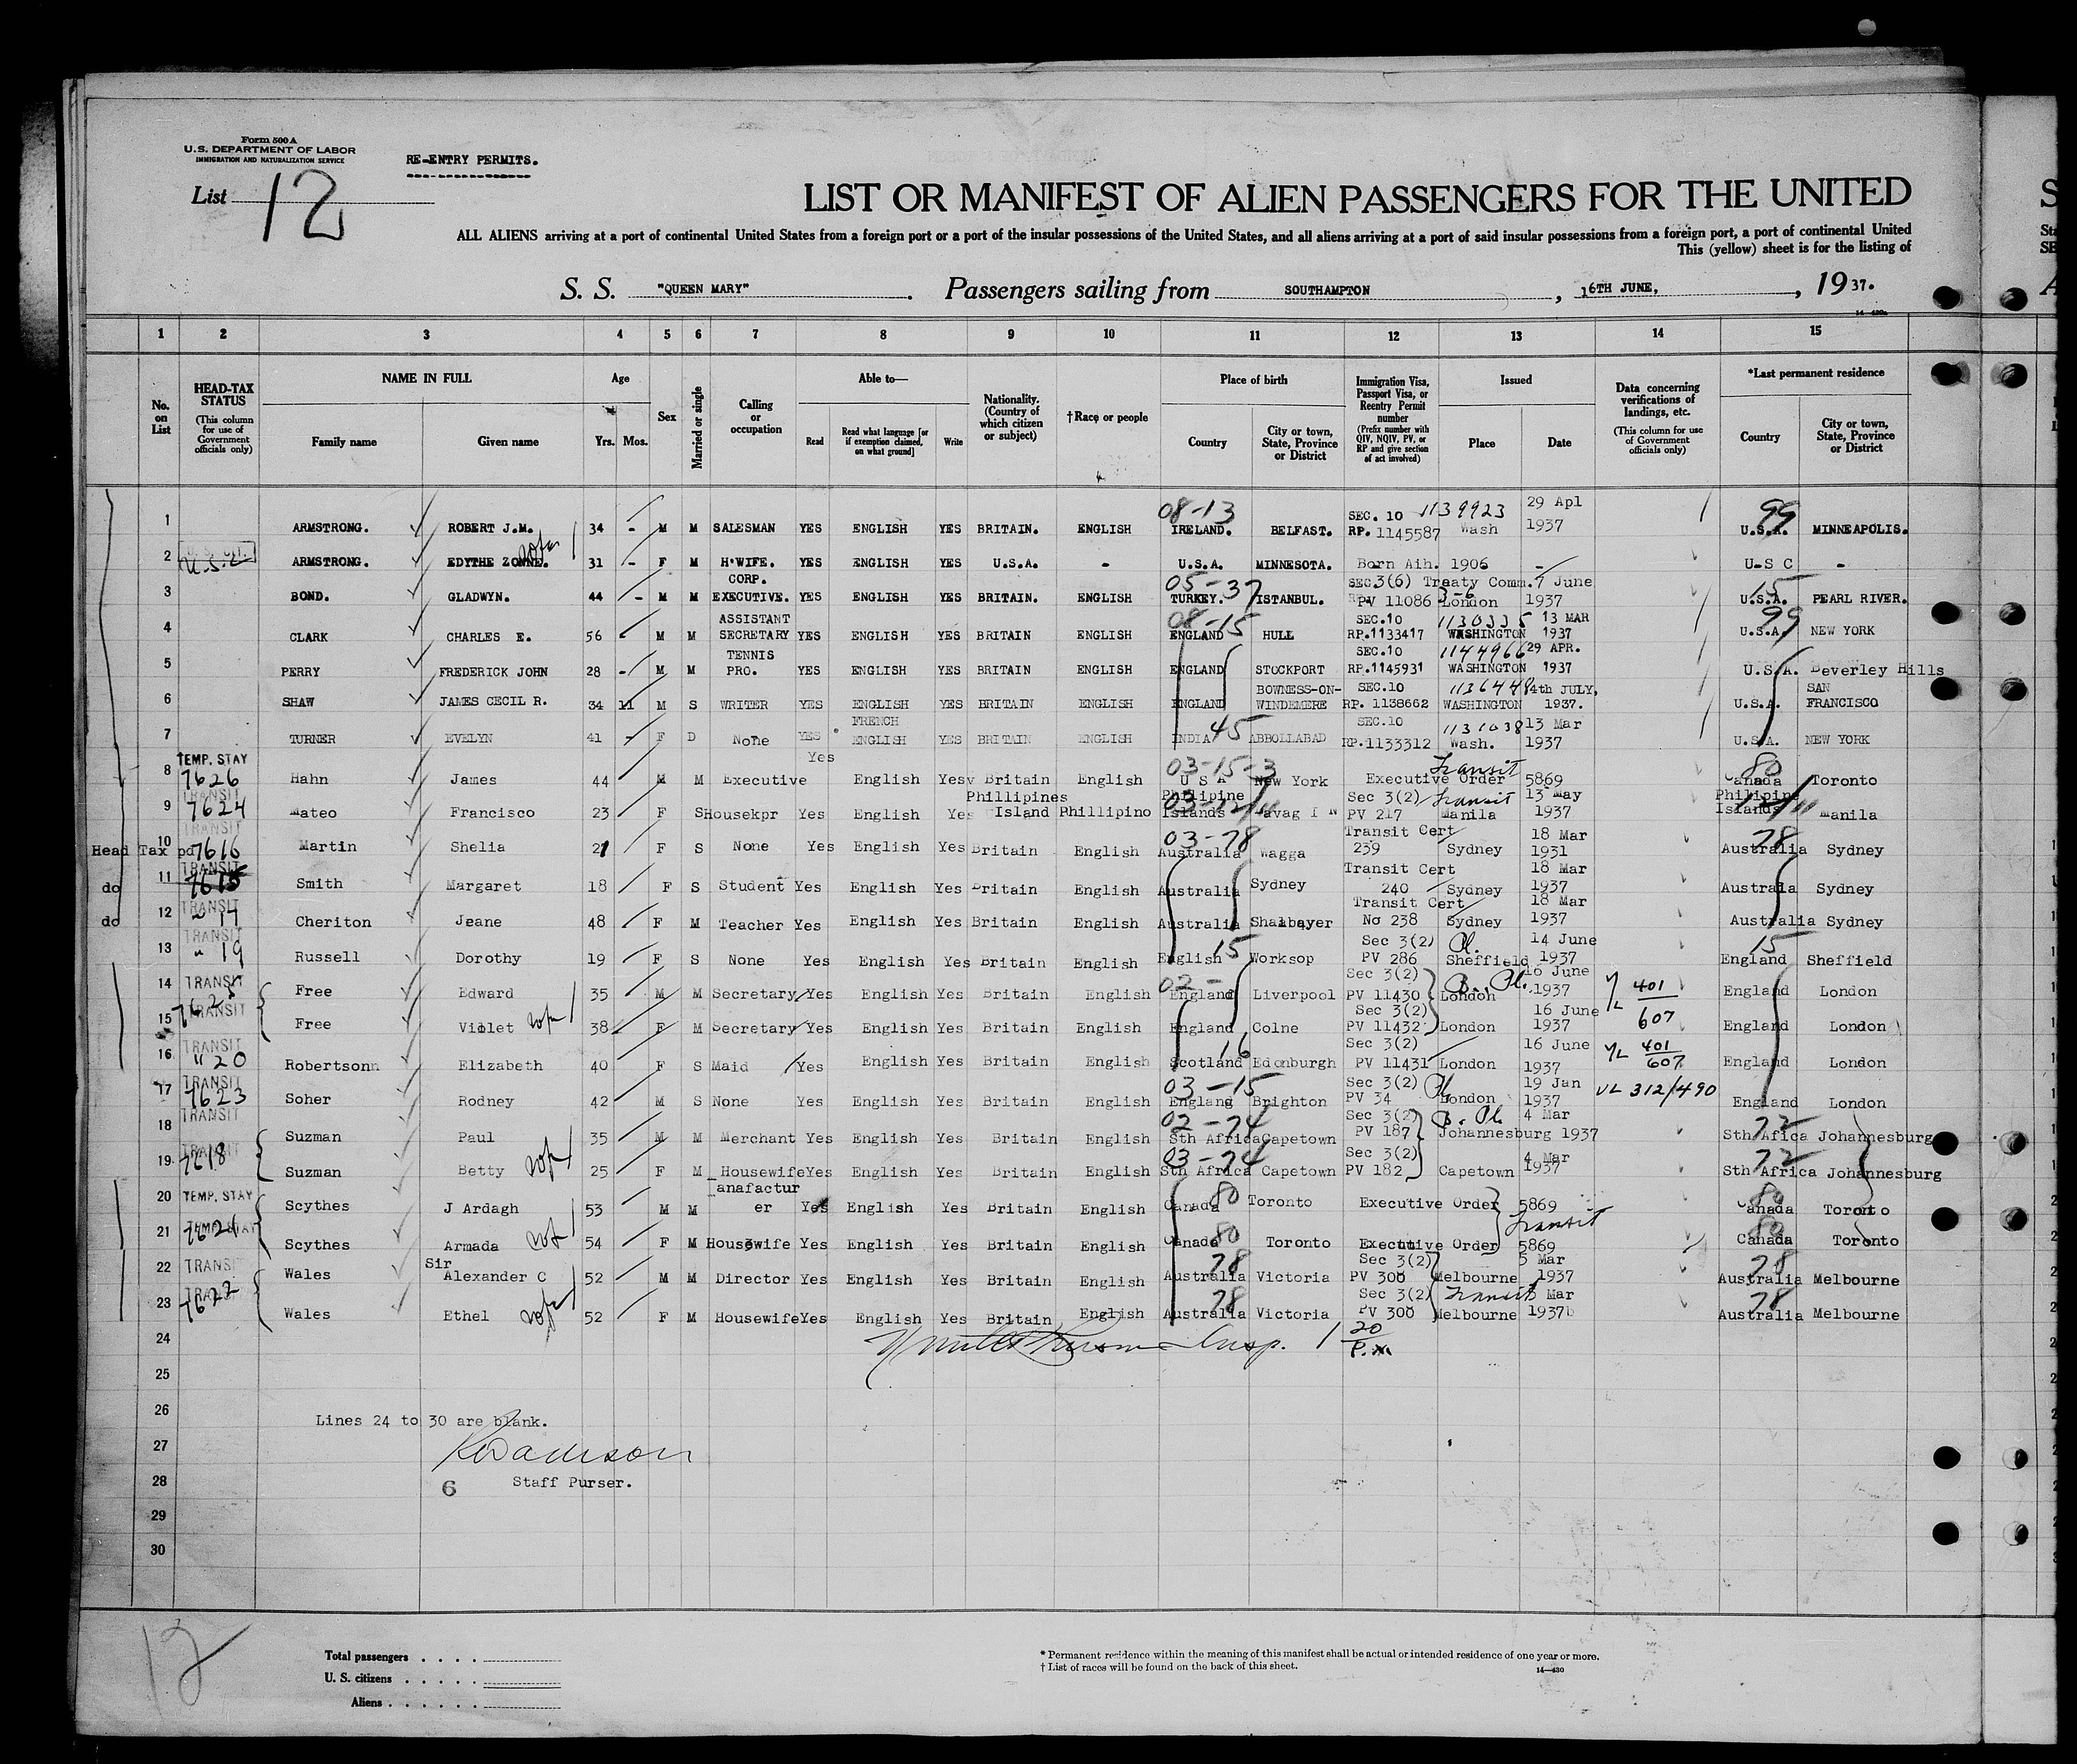 Form 500 A
U.S. DEPARTMENT OF LABOR
IMMIGRATION AND NATURALIZATION SERVICE
RE-ENTRY PERMITS.
List 12
LIST OR MANIFEST OF ALIEN PASSENGERS FOR THE UNITED
ALL ALIENS arriving at a port of continental United States from a foreign port or a port of the insular possessions of the United States, and all aliens arriving at a port of said insular possessions from a foreign port, a port of continental United
This (yellow) sheet is for the listing of
S. S. "QUEEN MARY". Passengers sailing from SOUTHAMPTON, 16TH JUNE, 1937.
1 2 3 4 5 6 7 8 9 10 11 12 13 14 15
No. on List
HEAD-TAX STATUS (This column for use of Government officials only)
NAME IN FULL Family name Given name
Age Yrs. Mos.
Sex
Married or single
Calling or occupation
Able to— Read Read what language [or if exemption claimed, on what ground] Write
Nationality. (Country of which citizen or subject)
†Race or people
Place of birth Country City or town, State, Province or District
Immigration Visa, Passport Visa, or Reentry Permit number (Prefix number with QIV, NQIV, PV, or RP and give section of act involved)
Issued Place Date
Data concerning verifications of landings, etc. (This column for use of Government officials only)
*Last permanent residence Country City or town, State, Province or District
1 ARMSTRONG. ROBERT J.M. 34 - M M SALESMAN YES ENGLISH YES BRITAIN. ENGLISH 08-13 IRELAND. BELFAST. SEC. 10 RP. 1145587 1139923 Wash 29 Apl 1937 99 U.S.A. MINNEAPOLIS.
2 ARMSTRONG. EDYTHE ZONNE. 31 - F M H'WIFE. YES ENGLISH YES U.S.A. - U.S.A. MINNESOTA. Born Aih. 1906 - U-S C -
3 BOND. GLADWYN. 44 - M M CORP. EXECUTIVE. YES ENGLISH YES BRITAIN. ENGLISH 05-37 TURKEY. ISTANBUL. SEC 3(6) Treaty Comm. PV 11086 3-6 London 7 June 1937 15 U.S.A. PEARL RIVER.
4 CLARK CHARLES E. 56 M M ASSISTANT SECRETARY YES ENGLISH YES BRITAIN ENGLISH 08-15 ENGLAND HULL SEC.10 RP.1133417 1130335 WASHINGTON 13 MAR 1937 99 U.S.A. NEW YORK
5 PERRY FREDERICK JOHN 28 - M M TENNIS PRO. YES ENGLISH YES BRITAIN ENGLISH ENGLAND STOCKPORT SEC.10 RP.1145931 1144966 WASHINGTON 29 APR. 1937 U.S.A. Beverley Hills
6 SHAW JAMES CECIL R. 34 11 M S WRITER YES ENGLISH YES BRITAIN ENGLISH ENGLAND BOWNESS-ON-WINDEMERE SEC.10 RP. 1138662 1136448 WASHINGTON 4th JULY, 1937. U.S.A. SAN FRANCISCO
7 TURNER EVELYN 41 - F D None YES FRENCH ENGLISH YES BRITAIN ENGLISH INDIA 45 ABBOLLABAD SEC.10 RP.1133312 1131038 Wash. 13 Mar 1937 U.S.A. NEW YORK
8 TEMP. STAY 7626 Hahn James 44 M M Executive Yes English Yes Britain English 03-15-3 U S A New York Executive Order 5869 Transit 80 Canada Toronto
9 TRANSIT 7624 Mateo Francisco 23 F S Housekpr Yes English Yes Phillipines Island Phillipino Philipine Islands Sec 3(2) PV 217 Transit Manila 13 May 1937 Philipine Islands Manila
Head Tax pd 10 TRANSIT 7616 Martin Shelia 21 F S None Yes English Yes Britain English 03-78 Australia Wagga Transit Cert 239 Sydney 18 Mar 1931 78 Australia Sydney
do 11 TRANSIT 7615 Smith Margaret 18 F S Student Yes English Yes Britain English Australia Sydney Transit Cert 240 Sydney 18 Mar 1937 Australa Sydney
do 12 TRANSIT Cheriton Jeane 48 F M Teacher Yes English Yes Britain English Australia Transit Cert No 238 Sydney 18 Mar 1937 Australia Sydney
13 TRANSIT " 19 Russell Dorothy 19 F S None Yes English Yes Britain English English 15 Worksop Sec 3(2) PV 286 Sheffield 14 June 1937 15 England Sheffield
14 TRANSIT Free Edward 35 M M Secretary Yes English Yes Britain English 02- England Liverpool Sec 3(2) PV 11430 London 16 June 1937 401 England London
15 TRANSIT Free Violet 38 F M Secretary Yes English Yes Britain English England Colne Sec 3(2) PV 11432 London 16 June 1937 607 England London
16 TRANSIT " 20 Robertson Elizabeth 40 F S Maid Yes English Yes Britain English Scotland 16 Edonburgh Sec 3(2) PV 11431 London 16 June 1937 401 607 England London
17 TRANSIT 7623 Soher Rodney 42 M S None Yes English Yes Britain English 03-15 England Brighton Sec 3(2) PV 34 London 19 Jan 1937 VL 312/490 England London
18 TRANSIT Suzman Paul 35 M M Merchant Yes English Yes Britain English 02-74 Sth Africa Capetown Sec 3(2) PV 187 Johannesburg 4 Mar 1937 72 Sth Africa Johannesburg
19 TRANSIT 7618 Suzman Betty 25 F M Housewife Yes English Yes Britain English 03-74 Sth Africa Capetown Sec 3(2) PV 182 Capetown 4 Mar 1937 72 Sth Africa Johannesburg
20 TEMP. STAY Scythes J Ardagh 53 M M anafactur er Yes English Yes Britain English Canada 80 Toronto Executive Order 5869 80 Canada Toronto
21 TEMP. STAY 7621 Scythes Armada 54 F M Housewife Yes English Yes Britain English Canada 80 Toronto Executive Order 5869 Transit 80 Canada Toronto
22 TRANSIT Wales Sir Alexander C 52 M M Director Yes English Yes Britain English 78 Australia Victoria Sec 3(2) PV 300 Melbourne 5 Mar 1937 78 Australia Melbourne
23 TRANSIT 7622 Wales Ethel 52 F M Housewife Yes English Yes Britain English 78 Australia Victoria Sec 3(2) PV 300 Transit Melbourne Mar 1937 78 Australia Melbourne
24 Insp. 20
25
26 Lines 24 to 30 are blank.
27
28 6 Staff Purser.
29
30
12
Total passengers
U. S. citizens
Aliens
* Permanent residence within the meaning of this manifest shall be actual or intended residence of one year or more.
† List of races will be found on the back of this sheet.
14—430